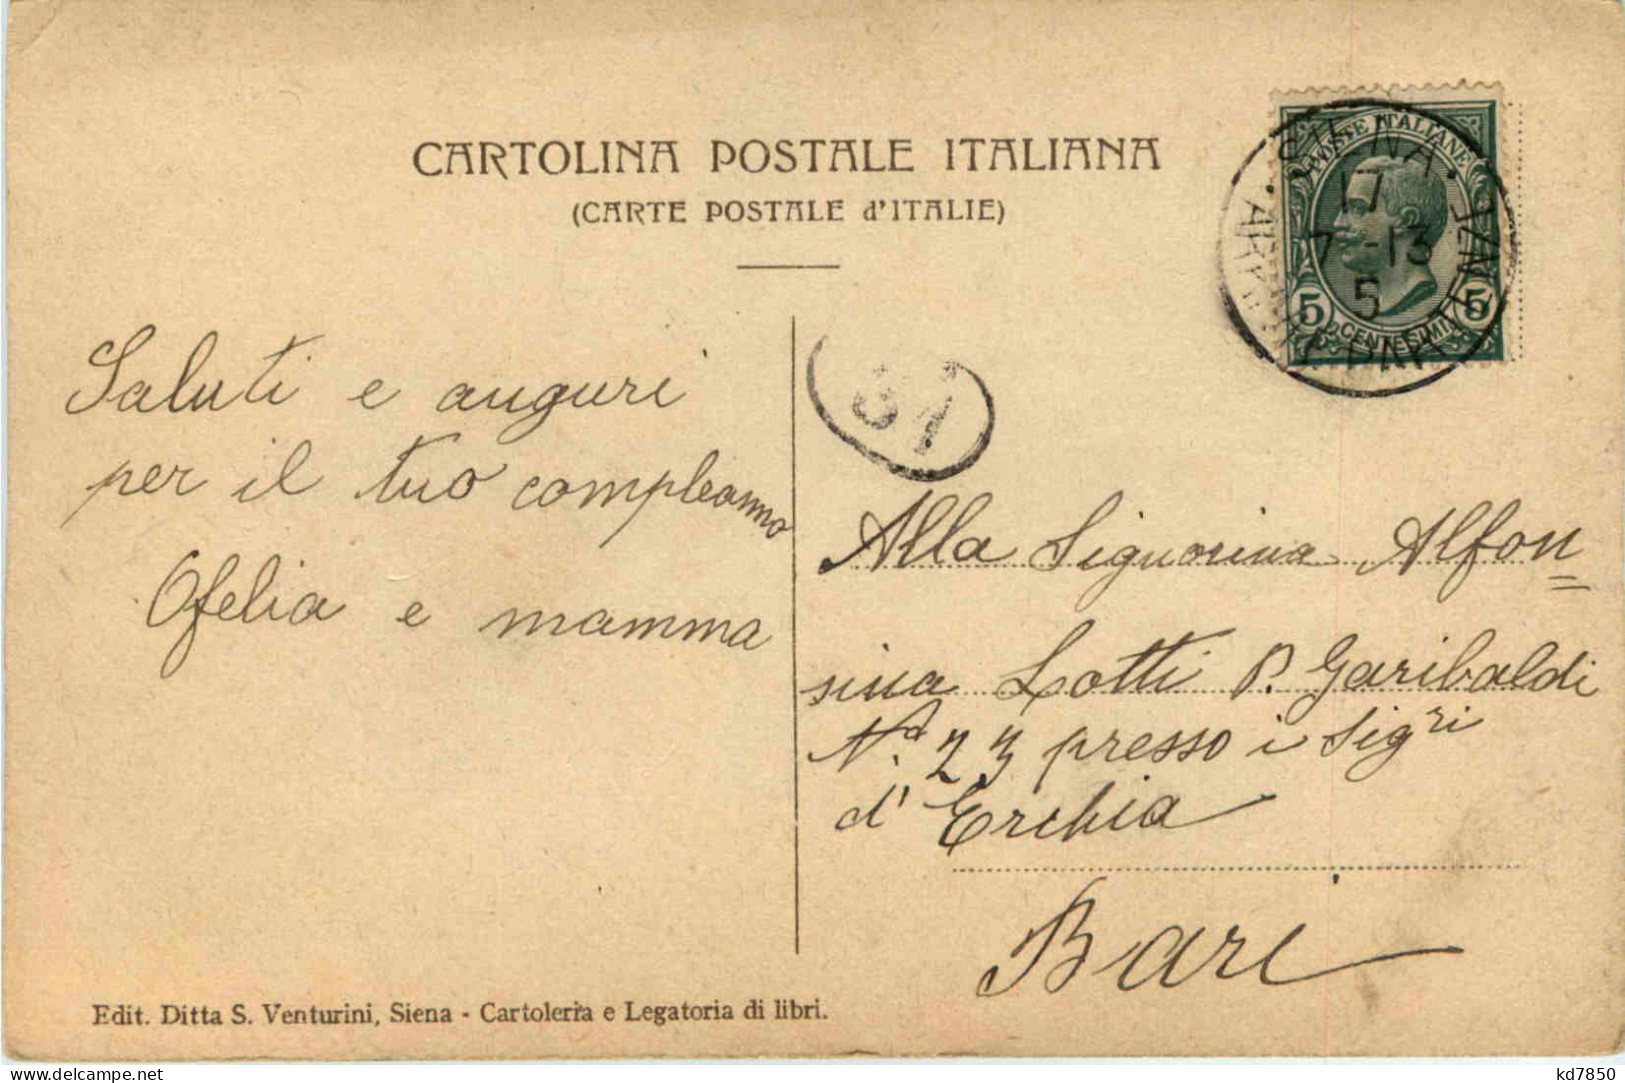 CARTOLINA POSTALE ITALIANA
(CARTE POSTALE d'ITALIE)
POSTE ITALIANE
5 CENTESIMI 5
SIENA
ARRIVI PARTENZE
17
7-13
5
31
Saluti e auguri
per il tuo compleanno
Ofelia e mamma
Alla Signorina Alfon=
sina Lotti P. Garibaldi
N.º 23 presso i Sigri
d'Erchia
Bari
Edit. Ditta S. Venturini, Siena - Cartoleria e Legatoria di libri.
delcampe.net
kd7850